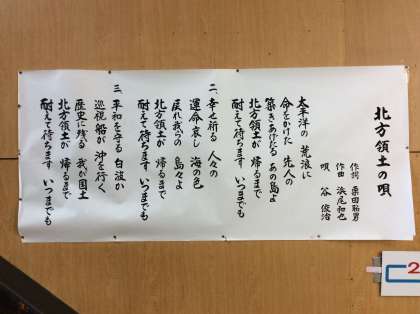 北方領土の唄
作詞 栗田聡男
作曲 浜尾和也
唄 谷俊治
太平洋の 荒浪に
命をかけた 先人の
築きあげたる あの島よ
北方領土が 帰るまで
耐えて待ちます いつまでも
二、幸せ祈る 人々の
運命哀し 海の色
戻れ我らの 島々よ
北方領土が 帰るまで
耐えて待ちます いつまでも
三、平和を守る 白波か
巡視船が 沖を行く
歴史に残る 我が国土
北方領土が 帰るまで
耐えて待ちます いつまでも
C2